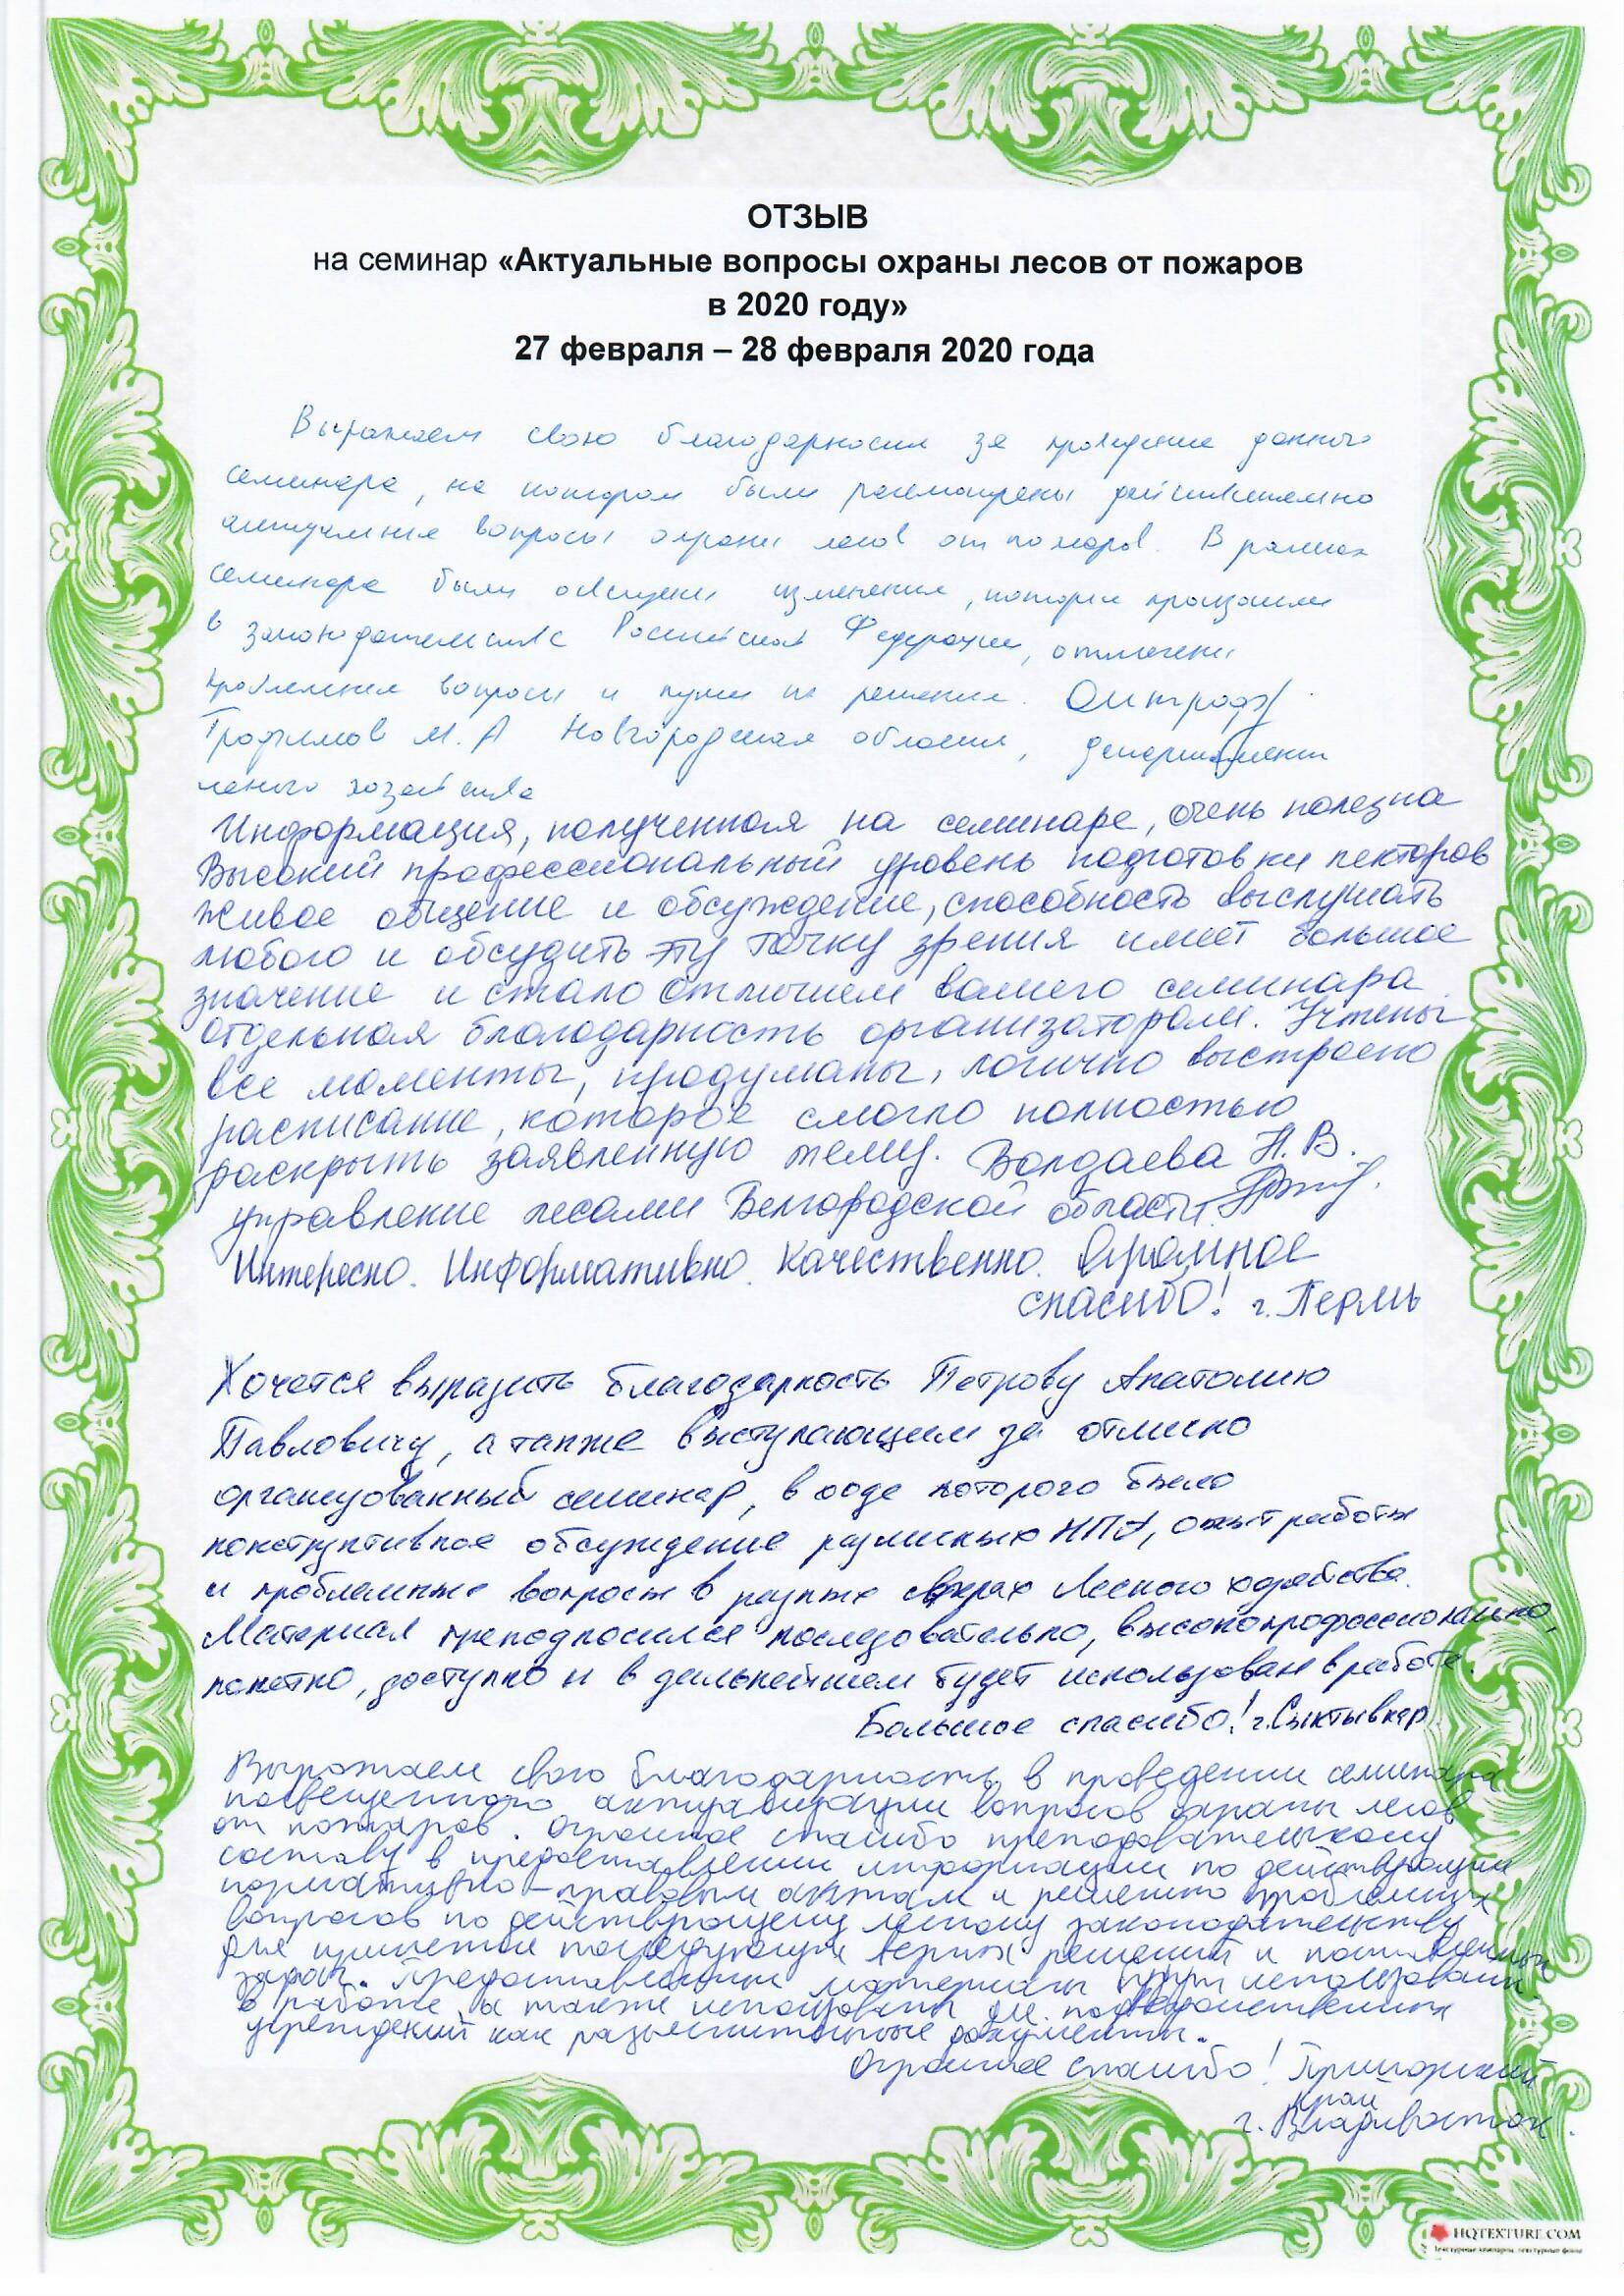 ОТЗЫВ
на семинар «Актуальные вопросы охраны лесов от пожаров
в 2020 году»
27 февраля – 28 февраля 2020 года
Выражаем свою благодарность за проведение данного
семинара, на котором были рассмотрены действительно
актуальные вопросы охраны лесов от пожаров. В рамках
семинара были освещены изменения, которые произошли
в законодательстве Российской Федерации, отмечены
проблемные вопросы и пути их решения.
Трофимов М.А Новгородская область, департамент
лесного хозяйства
Информация, полученная на семинаре, очень полезна
Высокий профессиональный уровень подготовки лекторов
живое общение и обсуждение, способность выслушать
любого и обсудить эту точку зрения имеет большое
значение и стало отличием вашего семинара
отдельная благодарность организаторам. Учтены
все моменты, продуманы, логично выстроено
расписание, которое смогло полностью
раскрыть заявленную тему. Болдаева Н.В.
управление лесами Белгородской области.
Интересно. Информативно. Качественно. Огромное
спасибо! г. Пермь
Хочется выразить благодарность Петрову Анатолию
Павловичу, а также выступающим за отлично
организованный семинар, в ходе которого было
конструктивное обсуждение различных НПА, опыт работы
и проблемные вопросы в разных сферах Лесного хозяйства.
Материал преподносился последовательно, высокопрофессионально,
понятно, доступно и в дальнейшем будет использован в работе.
Большое спасибо! г.Сыктывкар.
Выражаем свою благодарность в проведении семинара
посвещенного актуализации вопросов охраны лесов
от пожаров. Огромное спасибо преподовательскому
составу в предоставлении информации по действующим
нормативно-правовым актам и решению проблемных
вопросов по действующему лесному законодательству
для принятия последующих верных решений и поставленных
задач. Предоставленные материалы будут использованы
в работе, а также использованы для подведомственных
учреждений как разъяснительные документы.
Огромное спасибо! Приморский
край
г. Владивосток.
HQTEXTURE.COM